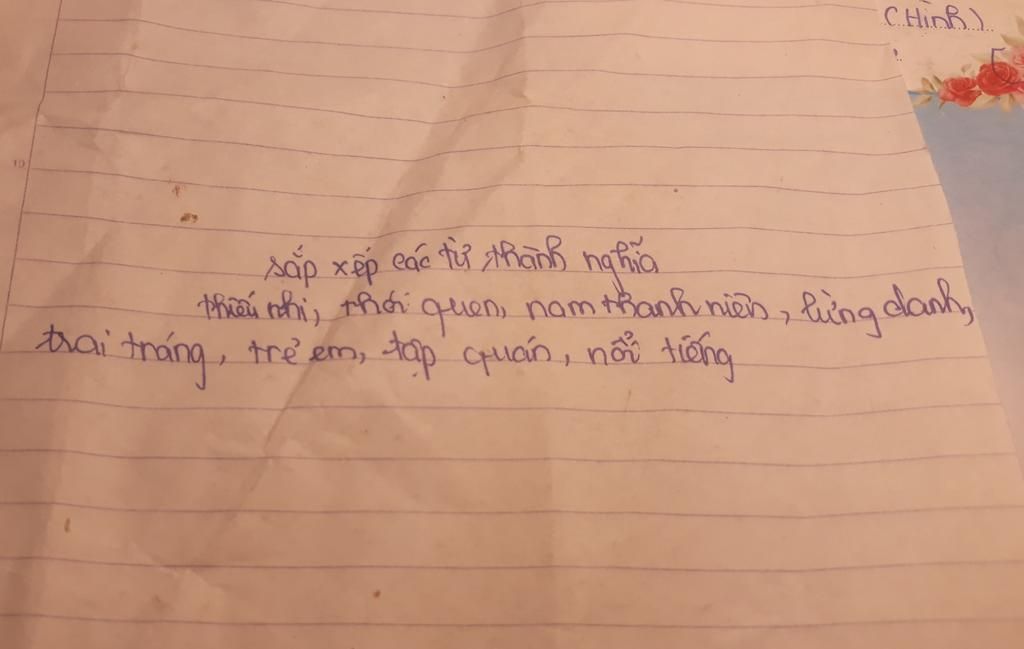 (Hình)
sắp xếp các từ thành nghĩa
thiếu nhi, thói quen, nam thanh niên, lừng danh,
trai tráng, trẻ em, tập quán, nổi tiếng